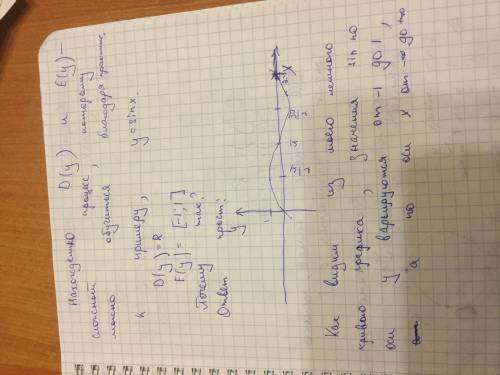 Нахождение D(y) и E(y) –
сложный процесс, которому
можно обучиться благодаря практике.
К примеру, y = sin x.
D(y) = R
E(y) = [-1; 1]
Почему так?
Ответ прост:
y
1
π/2
π
3π/2
2π
x
Как видим из моего немного
кривого графика, значения sin по
оси y варьируются от -1 до 1,
а по оси x от -∞ до +∞